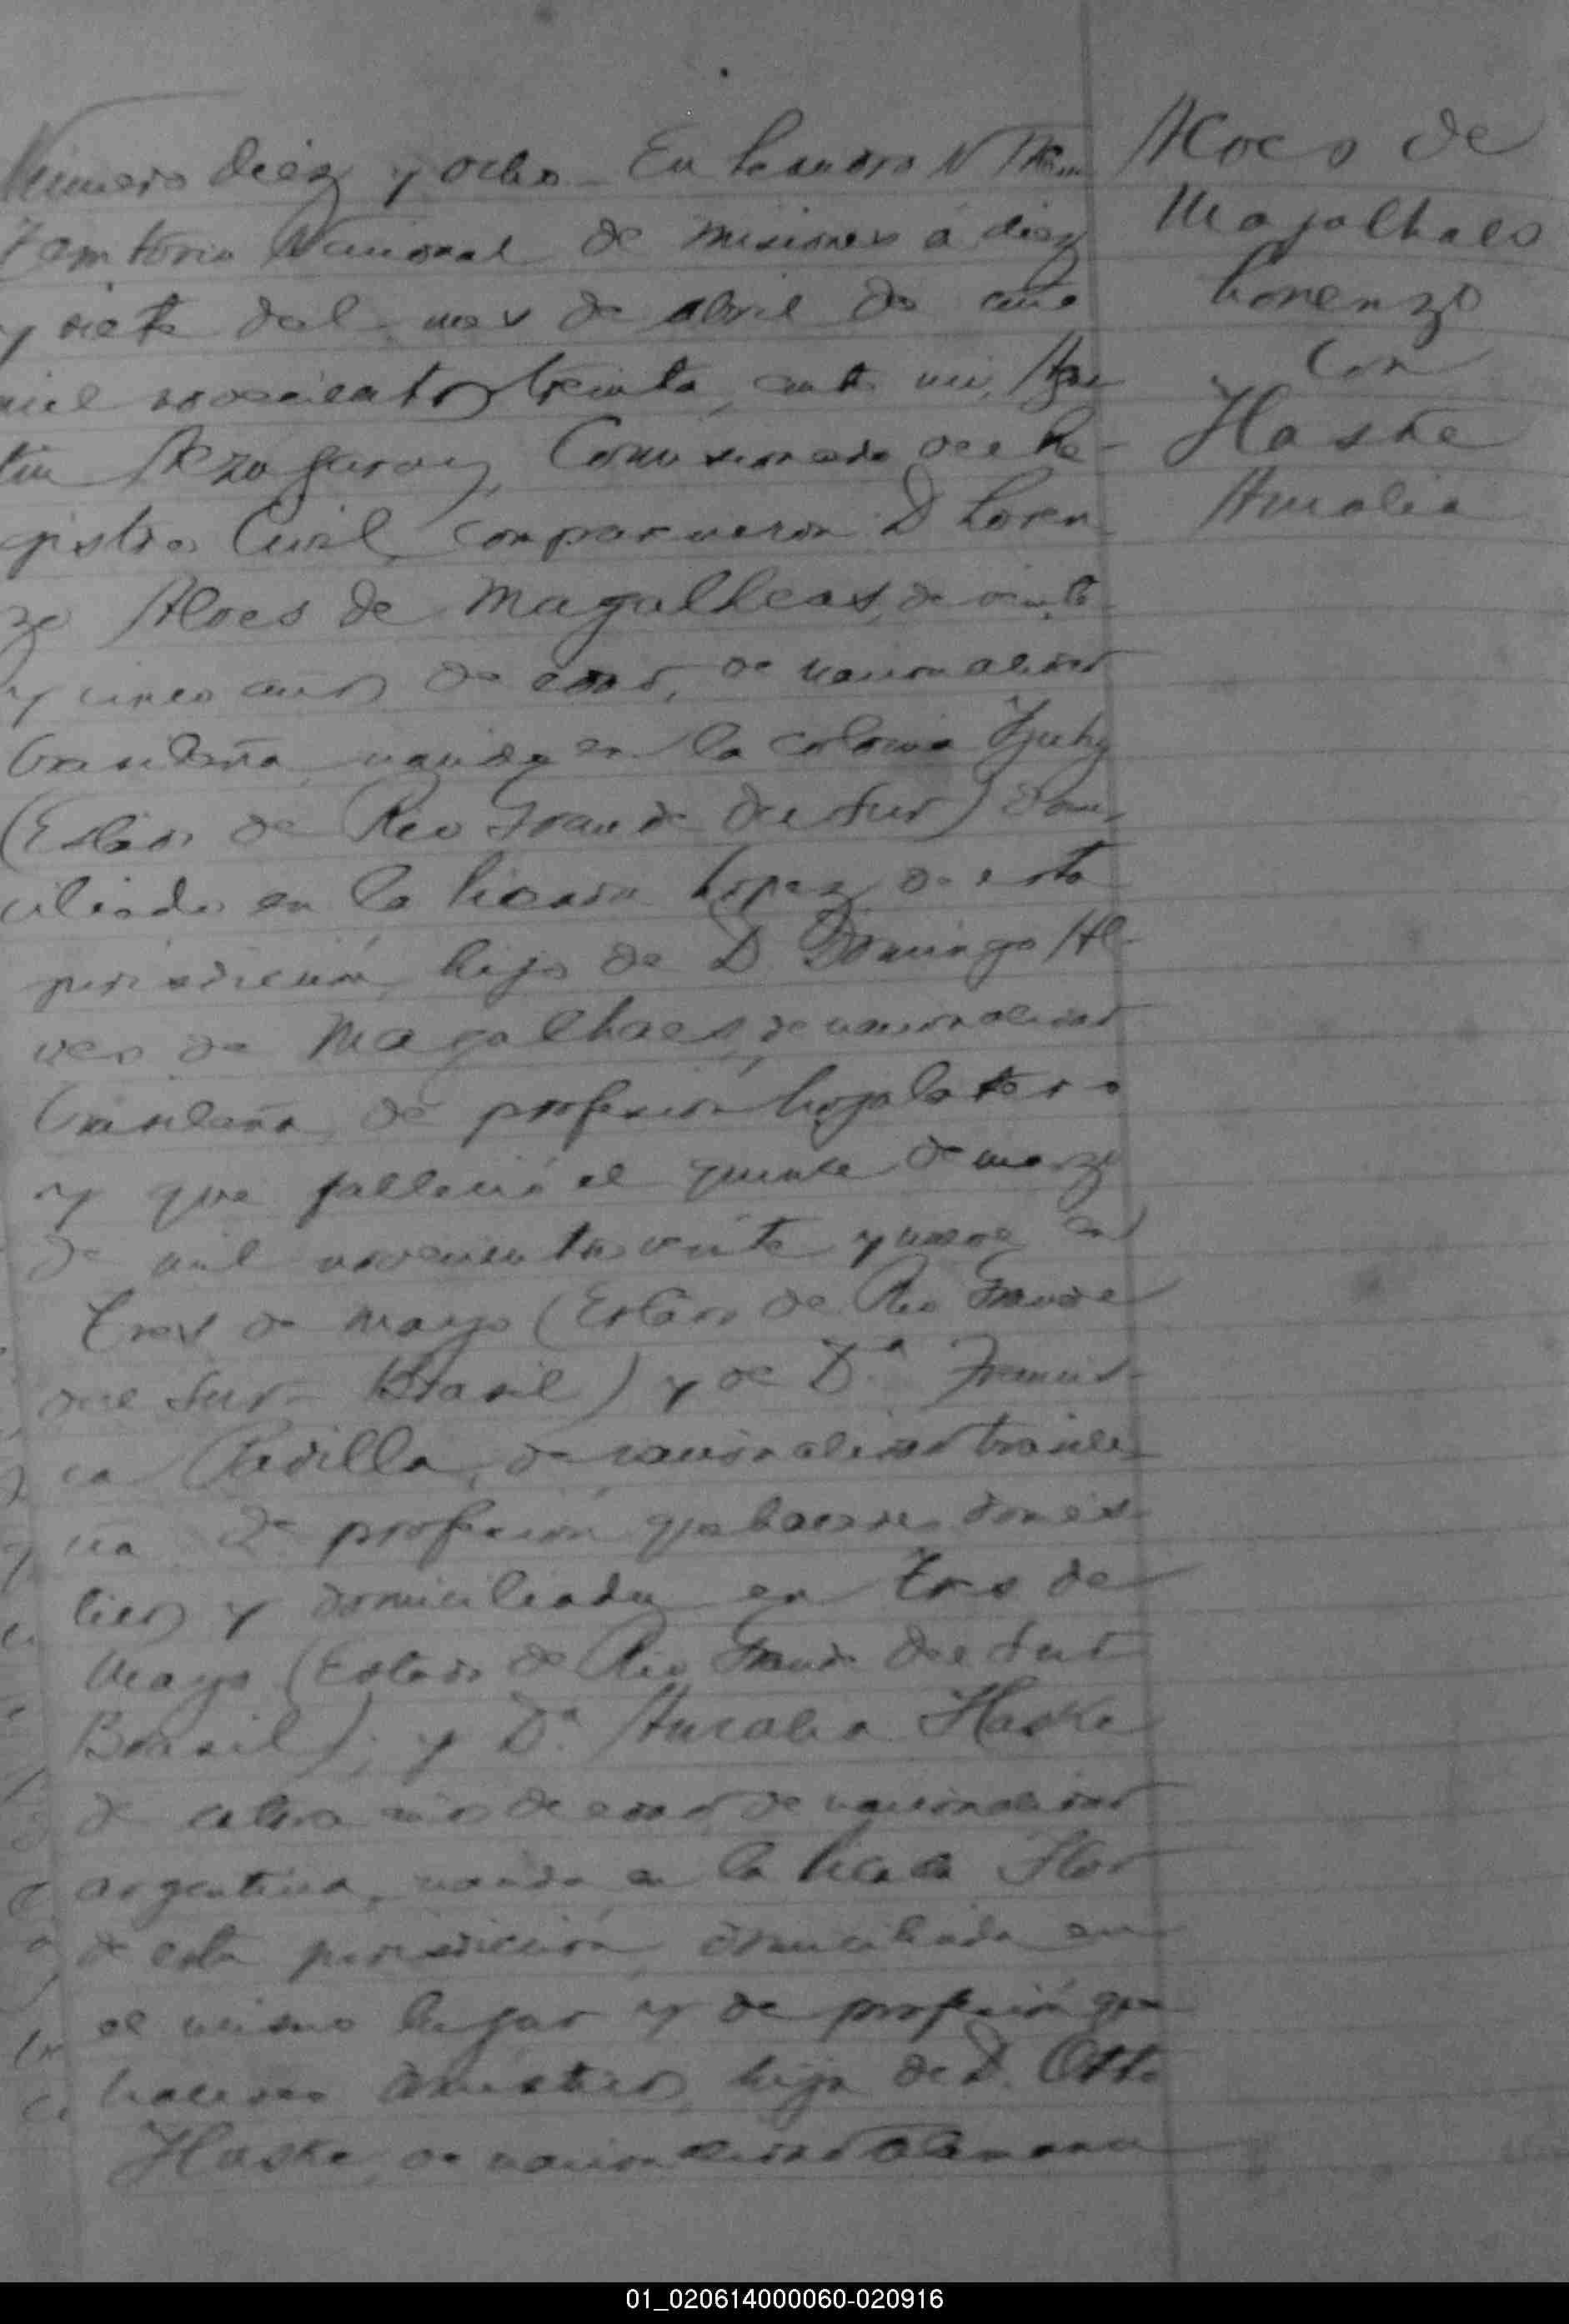 Numero diez y ocho - En Leandro N Alem
Territorio Nacional de Misiones a diez
y siete del mes de abril de año
mil novecientos treinta, ante mi, Agus
tin, Comisionado del Re-
gistro Civil, comparecieron D Loren
zo Alves de Magalheas, de veinte
y cinco años de edad, de nacionalidad
brasileña, nacido en la colonia Ijuhy
(Estado de Rio Grande del Sur) domi
ciliado en la Picada Lopez de esta
jurisdicción, hijo de D. Domingo Al-
ves de Magalhaes, de nacionalidad
brasileña, de profesión hojalatero
y que falleció el quince de marzo
de mil novecientos veinte y nueve en
Tres de Mayo (Estado de Rio Grande
del Sur - Brasil) y de Dª Francis-
ca Padilla, de nacionalidad brasile-
ña de profesión quehaceres domés
ticos y domiciliada en Tres de
Mayo (Estado de Rio Grande del Sur
Brasil); y Dª. Auralia Haske
de años de edad de nacionalidad
argentina, nacida en la Picada Flor
de esta jurisdicción, domiciliada en
el mismo lugar y de profesión que
haceres domésticos, hija de D. Otto
Haske, de nacionalidad alemana
Alves de
Magalhaes
Lorenzo
con
Haske
Auralia
01_020614000060-020916